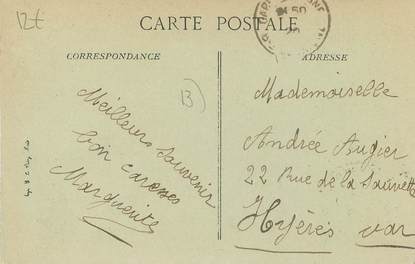 12€
CARTE POSTALE
CORRESPONDANCE
ADRESSE
13
Meilleurs souvenir
bon caresses
Marguerite
Mademoiselle
Andrée Augier
22 Rue de la
Hyères Var